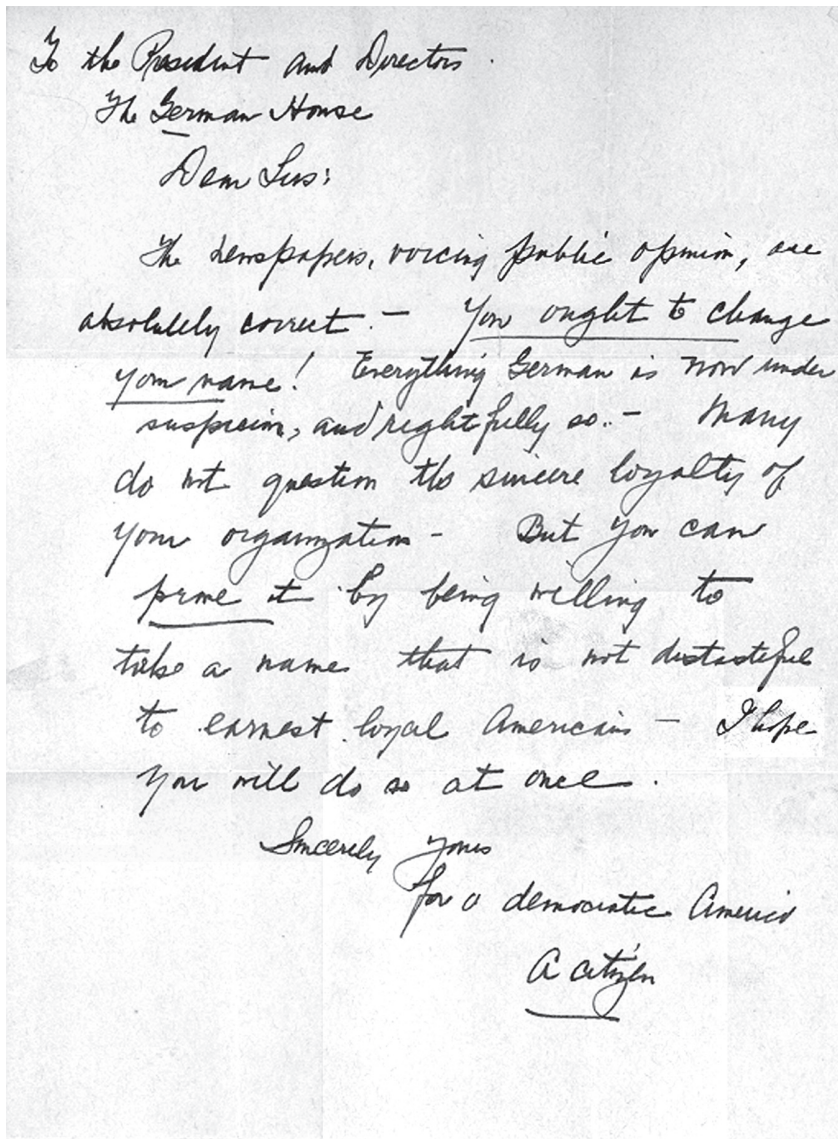 To the President and Directors
The German House
Dear Sirs:
The newspapers, voicing public opinion, are
absolutely correct. — You ought to change
your name! Everything German is now under
suspicion, and rightfully so. — Many
do not question the sincere loyalty of
your organization - But you can
prove it by being willing to
take a name that is not distasteful
to earnest loyal Americans — I hope
you will do so at once.
Sincerely yours
for a democratic America
A citizen